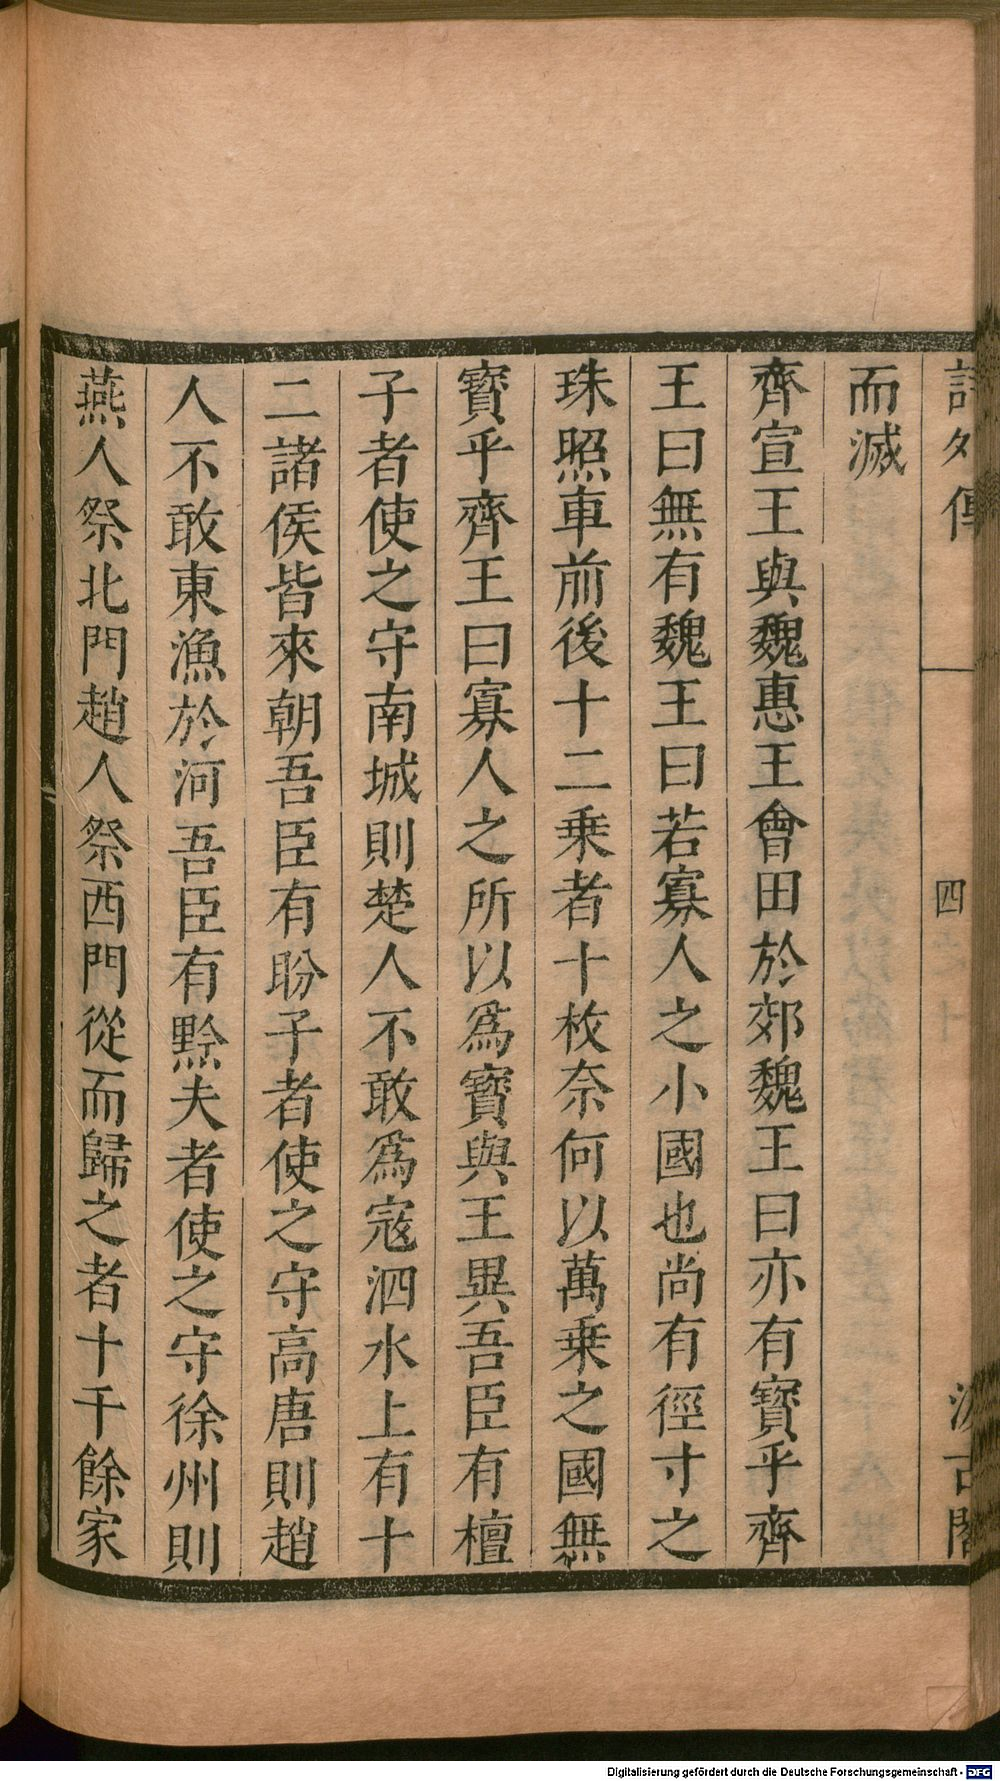 詩外傳
四
汲古閣
而滅
齊宣王與魏惠王會田於郊魏王曰亦有寶乎齊
王曰無有魏王曰若寡人之小國也尚有徑寸之
珠照車前後十二乗者十枚奈何以萬乗之國無
寶乎齊王曰寡人之所以爲寶與王異吾臣有檀
子者使之守南城則楚人不敢爲寇泗水上有十
二諸侯皆來朝吾臣有盼子者使之守高唐則趙
人不敢東漁於河吾臣有黔夫者使之守徐州則
燕人祭北門趙人祭西門從而歸之者十千餘家
Digitalisierung gefördert durch die Deutsche Forschungsgemeinschaft - DFG